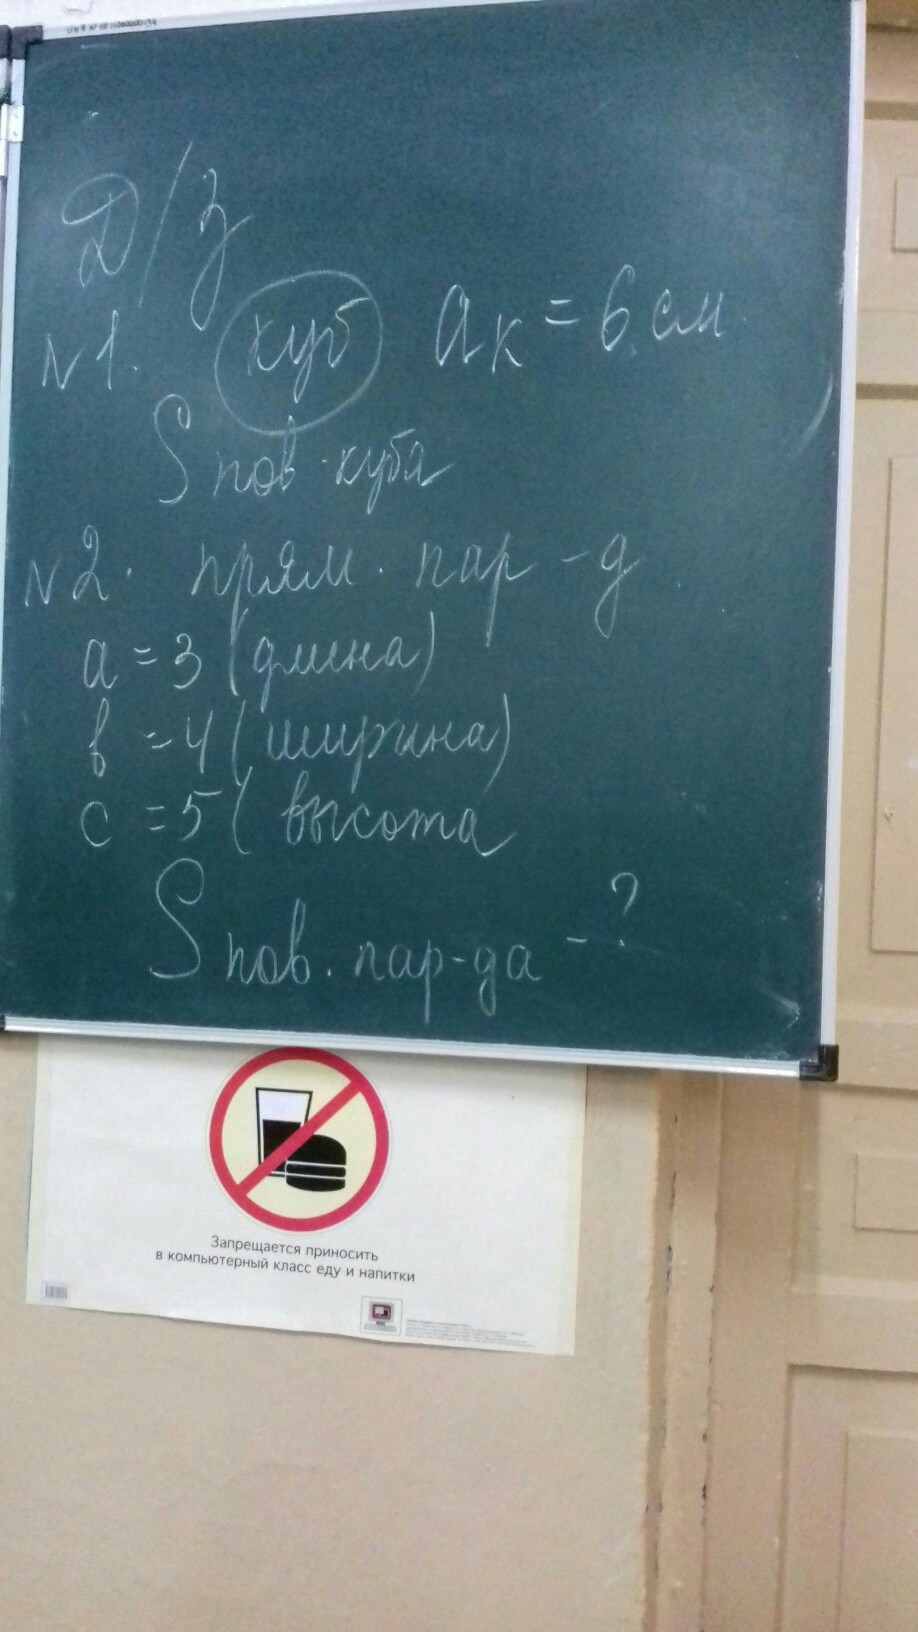 Д/З
N1. куб aк = 6 см
S пов. куба
N2. прям. пар-д
a = 3 (длина)
в = 4 (ширина)
c = 5 (высота
S пов. пар-да - ?
Запрещается приносить
в компьютерный класс еду и напитки